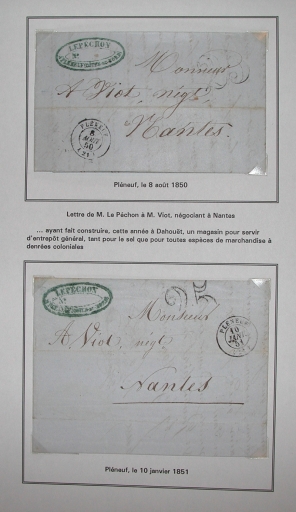 LEPECHON
Monsieur
A. Viot, négt.
Nantes.
PLÉNEUF
8
AOUT
50
(21)
Pléneuf, le 8 août 1850
Lettre de M. Le Péchon à M. Viot, négociant à Nantes
... ayant fait construire, cette année à Dahouët, un magasin pour servir
d'entrepôt général, tant pour le sel que pour toutes espèces de marchandise à
danrées coloniales
LEPECHON
25
Monsieur
A. Viot, négt.
Nantes
PLÉNEUF
10
JANV.
51
Pléneuf, le 10 janvier 1851